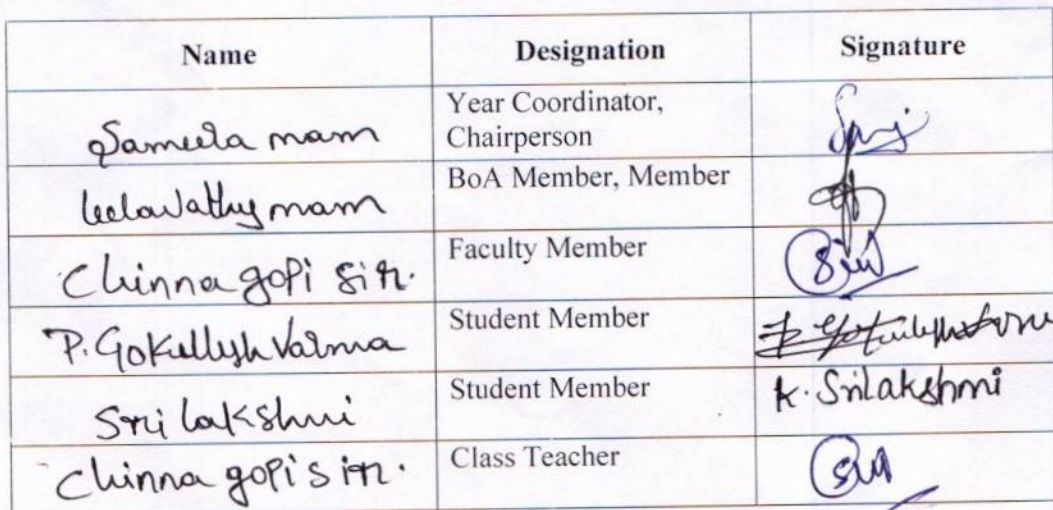 Name Designation Signature
Sameela mam Year Coordinator,
Chairperson
leelavathy mam BoA Member, Member
Chinna gopi sir. Faculty Member
P. Gokullesh Varma Student Member
Sri lakshmi Student Member K. Srilakshmi
Chinna gopi sir. Class Teacher